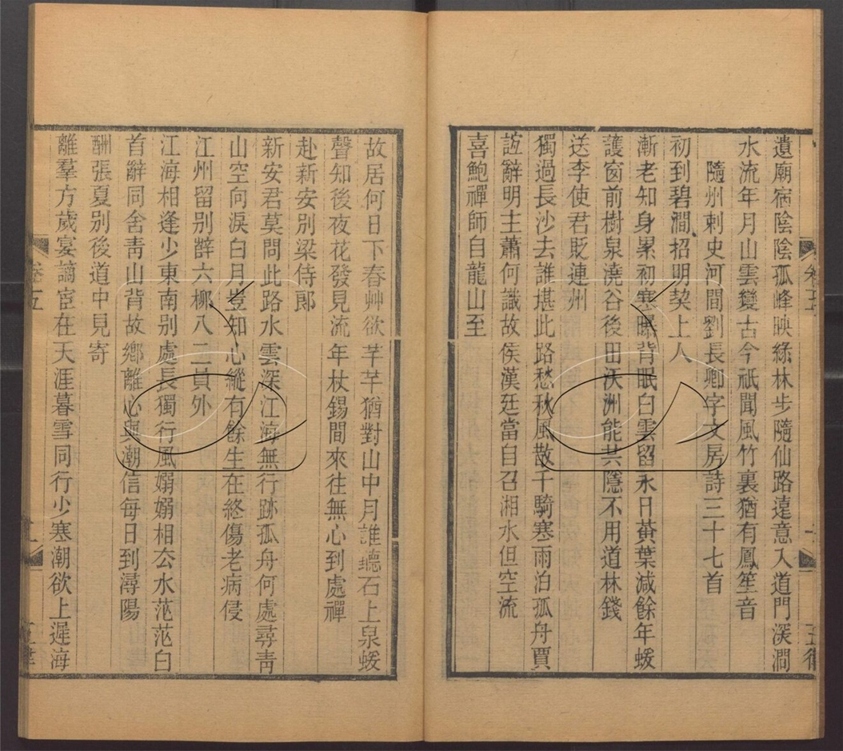 遺廟宿陰陰孤峰映綠林步隨仙路遠意入道門深澗
水流年月山雲變古今祇聞風竹裏猶有鳳笙音
隨州刺史河間劉長卿字文房詩三十七首
初到碧澗招明契上人
漸老知身累初寒曝背眠白雲留永日黃葉減餘年蝯
護窗前樹泉澆谷後田沃洲能共隱不用道林錢
送李使君貶連州
獨過長沙去誰堪此路愁秋風散千騎寒雨泊孤舟賈
誼辭明主蕭何識故侯漢廷當自召湘水但空流
喜鮑禪師自龍山至
故居何日下春艸欲芊芊猶對山中月誰聽石上泉蝯
聲知後夜花發見流年杖錫閒來往無心到處禪
赴新安別梁侍郎
新安君莫問此路水雲深江海無行跡孤舟何處尋青
山空向淚白月豈知心縱有餘生在終傷老病侵
江州留別薛六柳八二員外
江海相逢少東南別處長獨行風嫋嫋相去水茫茫白
首辭同舍青山背故鄉離心與潮信每日到潯陽
酬張夏別後道中見寄
離羣方歲宴謫宦在天涯暮雪同行少寒潮欲上遲海
卷五
五律